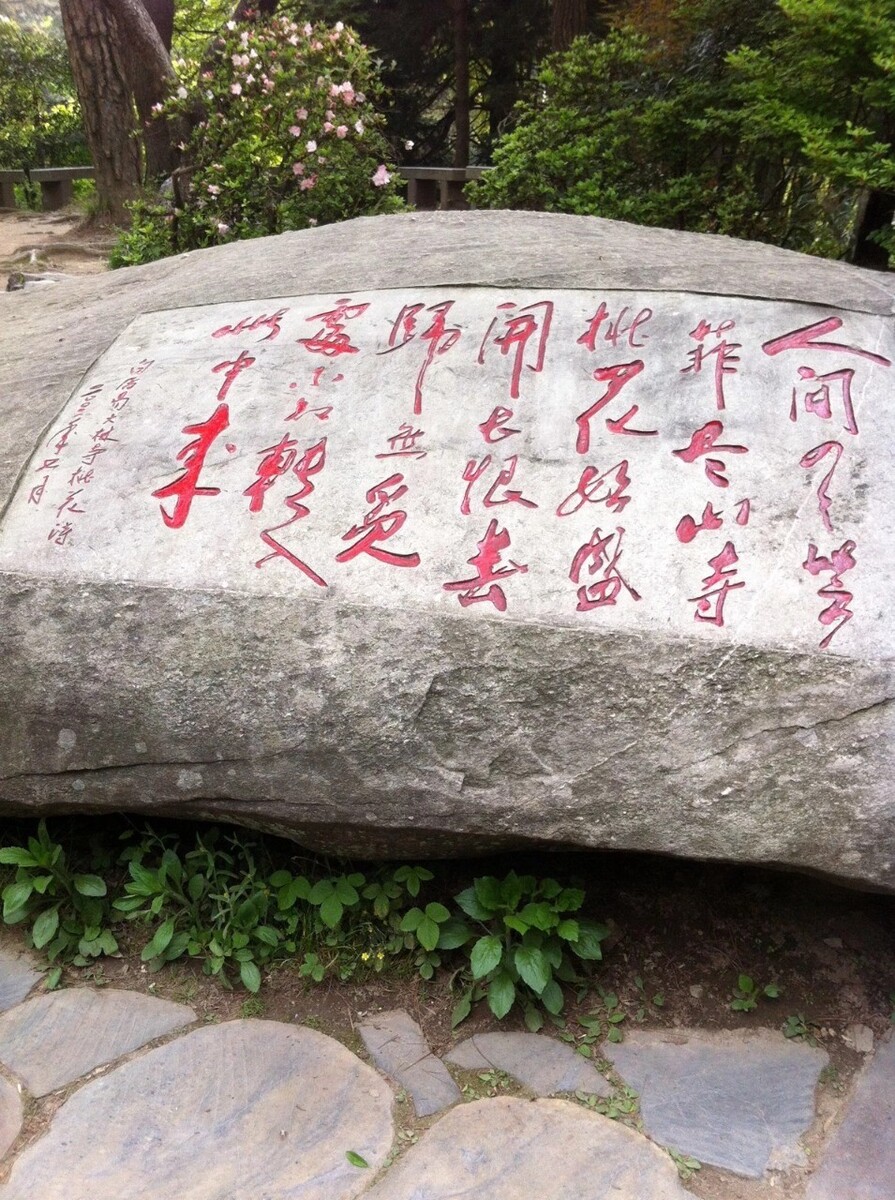 人间四月芳
菲尽山寺
桃花始盛
開长恨春
歸無觅
處不知轉入
此中来
白居易大林寺桃花诗
年七月